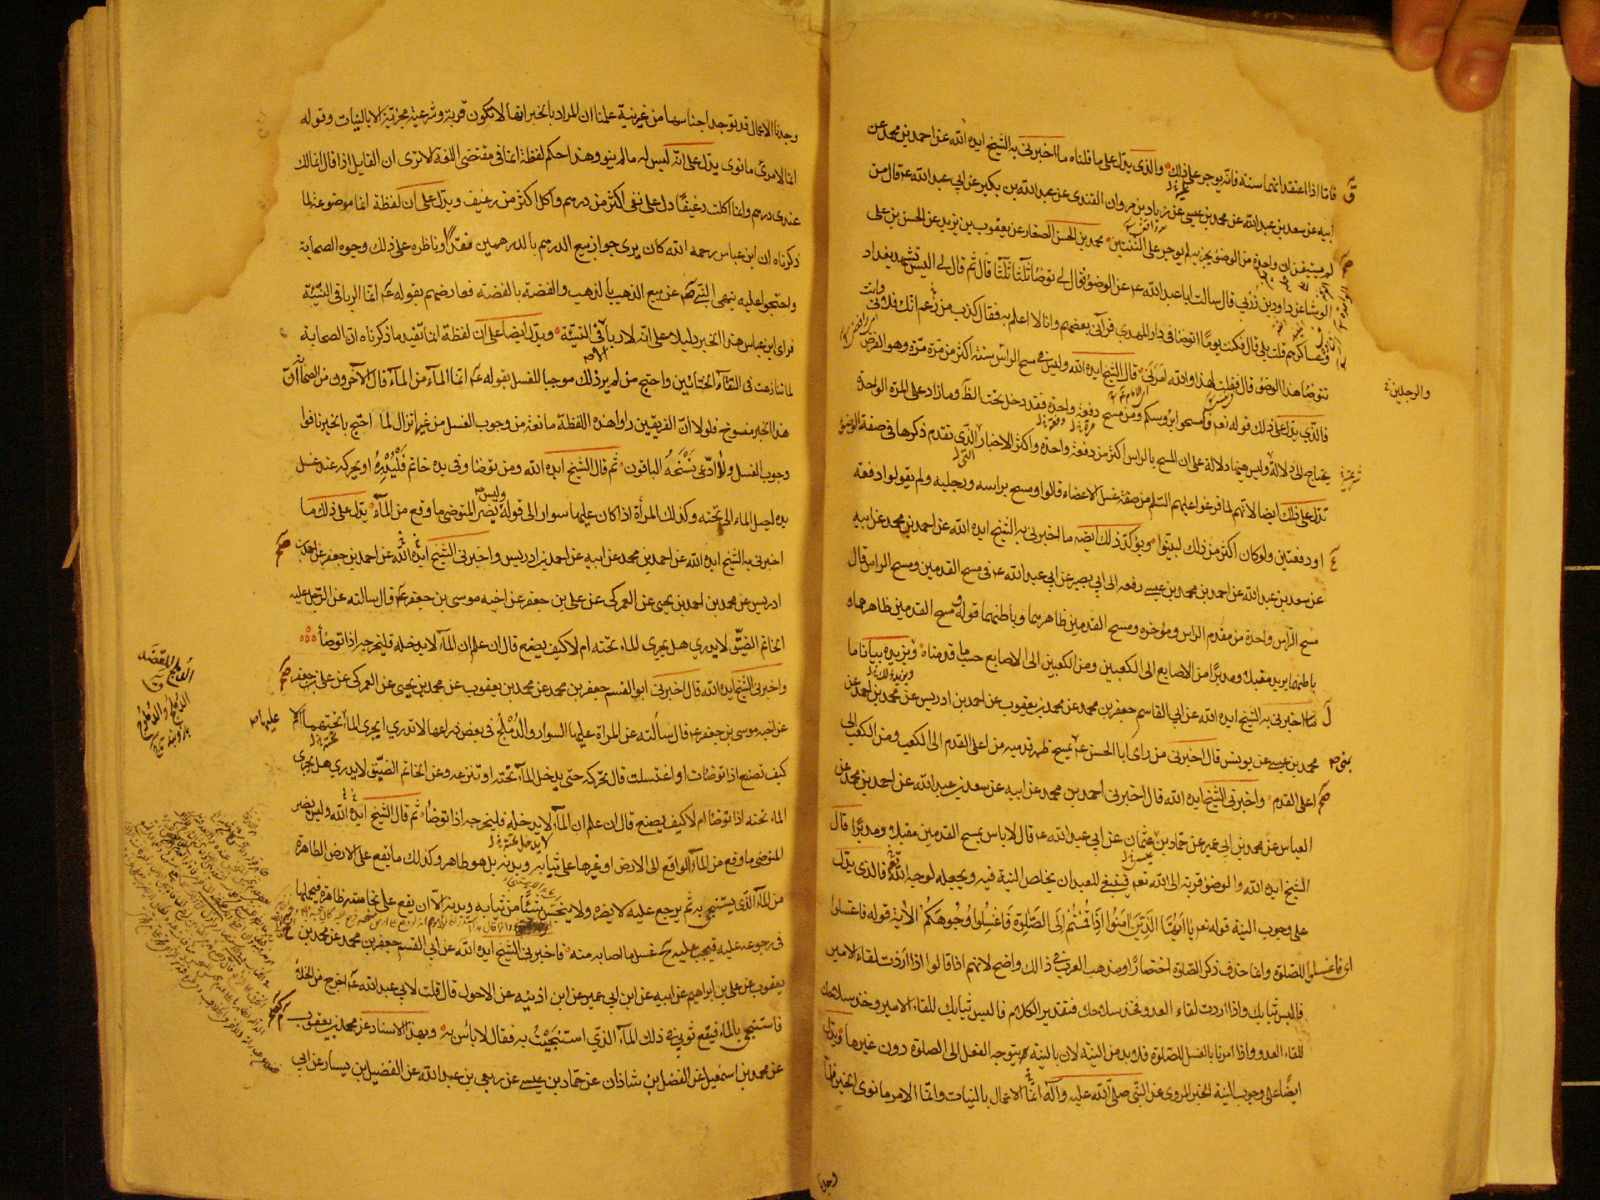 فاما اذا اعتقد انهما سنة فانه يوجر على ذلك والذي يدل على ما قلناه ما اخبرني به الشيخ ايده الله عن احمد بن محمد عن
ابيه عن سعد بن عبد الله عن محمد بن عيسى عن زياد بن مروان القندي عن عبد الله بن بكير عن ابي عبد الله ع قال من
لم يستيقن ان واحدة من الوضوء يجزيه لم يوجر على الثنتين محمد بن الحسن الصفار عن يعقوب بن يزيد عن الحسن بن علي
الوشا عن داود بن زربي قال سالت ابا عبد الله ع عن الوضوء فقال لي توضا ثلثا ثلثا قال ثم قال لي اليس تشهد بغداد
وعساكرهم قلت بلى قال فكنت يوما اتوضا في دار المهدي فرآني بعضهم وانا لا اعلم به فقال كذب من زعم انك فلاني وانت
تتوضا هذا الوضوء قال فقلت لهذا والله امرني قال الشيخ ايده الله وليس في مسح الراس سنة اكثر من مرة مرة وهو الفرض
فالذي يدل على ذلك قوله تعالى وامسحوا برؤسكم ومن مسح دفعة واحدة فقد دخل تحت الظاهر وما زاد على المرة الواحدة
يحتاج الى دلالة وليس هيهنا دلالة على ان المسح بالراس اكثر من دفعة واحدة واكثر الاخبار التي تقدم ذكرها في صفة الوضوء
تدل على ذلك ايضا لانهم لما فرغوا عليهم السلم من صفة غسل الاعضاء قالوا ومسح براسه ورجليه ولم يقولوا دفعة
او دفعتين ولو كان اكثر من ذلك لبينوا ويؤكد ذلك ايضا ما اخبرني به الشيخ ايده الله عن احمد بن محمد عن ابيه
عن سعد بن عبد الله عن احمد بن محمد بن عيسى رفعه الى ابي بصير عن ابي عبد الله ع في مسح القدمين ومسح الراس قال
مسح الراس واحدة من مقدم الراس وموخره ومسح القدمين ظاهرهما وباطنهما قوله ومسح القدمين ظاهرهما و
باطنهما يريد مقبلا ومدبرا من الاصابع الى الكعبين ومن الكعبين الى الاصابع حسب ما قدمناه ويزيده بيانا ما
اخبرني به الشيخ ايده الله عن ابي القاسم جعفر بن محمد عن محمد بن يعقوب عن احمد بن ادريس عن محمد بن احمد عن
محمد بن عيسى عن يونس قال اخبرني من راى ابا الحسن ع بمنى يمسح ظهر قدميه من اعلى القدم الى الكعب ومن الكعب الى
اعلى القدم واخبرني الشيخ ايده الله قال اخبرني احمد بن محمد عن ابيه عن سعد بن عبد الله عن احمد بن محمد عن
العباس عن محمد بن ابي عمير عن حماد بن عثمان عن ابي عبد الله ع قال لا باس بمسح القدمين مقبلا ومدبرا قال
الشيخ ايده الله والوضوء قربة الى الله تعالى فينبغي للعبد ان يخلص النية فيه ويجعله لوجه الله فالذي يدل
على وجوب النية قوله تعالى يا ايها الذين آمنوا اذا قمتم الى الصلوة فاغسلوا وجوهكم الآية قوله فاغسلوا
اي فاغسلوا للصلوة وانما حذف ذكر الصلوة اختصارا ومذهب العرب في ذلك واضح لانهم اذا قالوا اذا اردت لقاء الامير
فالبس ثيابك واذا اردت لقاء العدو فخذ سلاحك فتقدير الكلام فالبس ثيابك للقاء الامير وخذ سلاحك
للقاء العدو واذا امرنا بالغسل للصلوة فلا بد من النية لان بالنية يتوجه الفعل الى الصلوة دون غيرها ويدل
ايضا على وجوب النية الخبر المروي عن النبي صلى الله عليه وآله انما الاعمال بالنيات وانما لامرء ما نوى
وجدنا
والرجلين
وجدنا الاعمال قد توجد اجناسها من غير نية علمنا ان المراد بالخبر انها لا تكون قربة وشرعية مجزية الا بالنيات وقوله
انما لامرئ ما نوى يدل على انه ليس له ما لم ينو وهذا حكم لفظة انما في مقتضى اللغة الا ترى ان القايل اذا قال انما لك
عندي درهم وانما اكلت رغيفا دل على نفي اكثر من درهم واكل اكثر من رغيف ويدل على ان لفظة انما موضوعة لما
ذكرناه ان ابن عباس رحمه الله كان يرى جواز بيع الدرهم بالدرهمين نقدا وناظره على ذلك وجوه الصحابة
واحتجوا عليه بنهي النبي ص عن بيع الذهب بالذهب والفضة بالفضة فعارضهم بقوله ع انما الربا في النسيئة
فراى ابن عباس هذا الخبر دليلا على انه لا ربا الا في النسيئة ويدل ايضا على ان لفظة انما تفيد ما ذكرناه ان الصحابة
لما تنازعت في التقاء الختانين واحتج من لم ير ذلك موجبا للغسل بقوله ع انما الماء من الماء قال الآخرون من الصحابة ان
هذا الخبر منسوخ فلولا ان الفريقين راوا هذه اللفظة مانعة من وجوب الغسل من غير انزال لما احتج بالخبر نافوا
وجوب الغسل ولا ادعى نسخه الباقون ثم قال الشيخ ايده الله ومن توضا وفي يده خاتم فليدره او يحركه عند غسل
يده ليصل الماء الى تحته وكذلك المرأة اذا كان عليها سوار الى قوله وليس يضر المتوضي ما وقع من الماء يدل على ذلك ما
اخبرني به الشيخ ايده الله عن احمد بن محمد عن ابيه عن احمد بن ادريس واخبرني الشيخ ايده الله عن احمد بن جعفر عن احمد بن
ادريس عن محمد بن احمد بن يحيى عن العمركي عن علي بن جعفر عن اخيه موسى بن جعفر ع قال سالته عن الرجل عليه
الخاتم الضيق لا يدري هل يجري الماء تحته ام لا كيف يصنع قال ان علم ان الماء لا يدخله فليخرجه اذا توضأ
واخبرني الشيخ ايده الله قال اخبرني ابو القسم جعفر بن محمد عن محمد بن يعقوب عن محمد بن يحيى عن العمركي عن علي بن جعفر
عن اخيه موسى بن جعفر ع قال سألته عن المراة عليها السوار والدملج في بعض ذراعها لا تدري ايجري الماء تحتهما ام لا
كيف تصنع اذا توضات او اغتسلت قال تحركه حتى يدخل الماء تحته او تنزعه وعن الخاتم الضيق لا يدري هل يجري
الماء تحته اذا توضا ام لا كيف يصنع قال ان علم ان الماء لا يدخله فليخرجه اذا توضأ ثم قال الشيخ ايده الله وليس يضر
المتوضي ما وقع من الماء الواقع الى الارض او غيرها على ثيابه وبدنه بل هو طاهر وكذلك ما يقع على الارض الطاهرة
من الماء الذي يستنجي به ثم يرجع عليه لا يضره ولا ينجس شيئا من ثيابه وبدنه الا ان يقع على نجاسة ظاهرة فيحملها
في رجوعه عليه فيجب عليه ح غسل ما اصابه منه فاخبرني الشيخ ايده الله عن ابي القسم جعفر بن محمد عن محمد بن
يعقوب عن علي بن ابراهيم عن ابيه عن ابن ابي عمير عن ابن اذينه عن الاحول قال قلت لابي عبد الله ع اخرج من الخلاء
فاستنجي بالماء فيقع ثوبي في ذلك الماء الذي استنجيت به فقال لا بأس به وبهذا الاسناد عن محمد بن يعقوب
عن محمد بن اسمعيل عن الفضل بن شاذان عن حماد بن عيسى عن ربعي بن عبد الله عن الفضيل بن يسار عن ابي